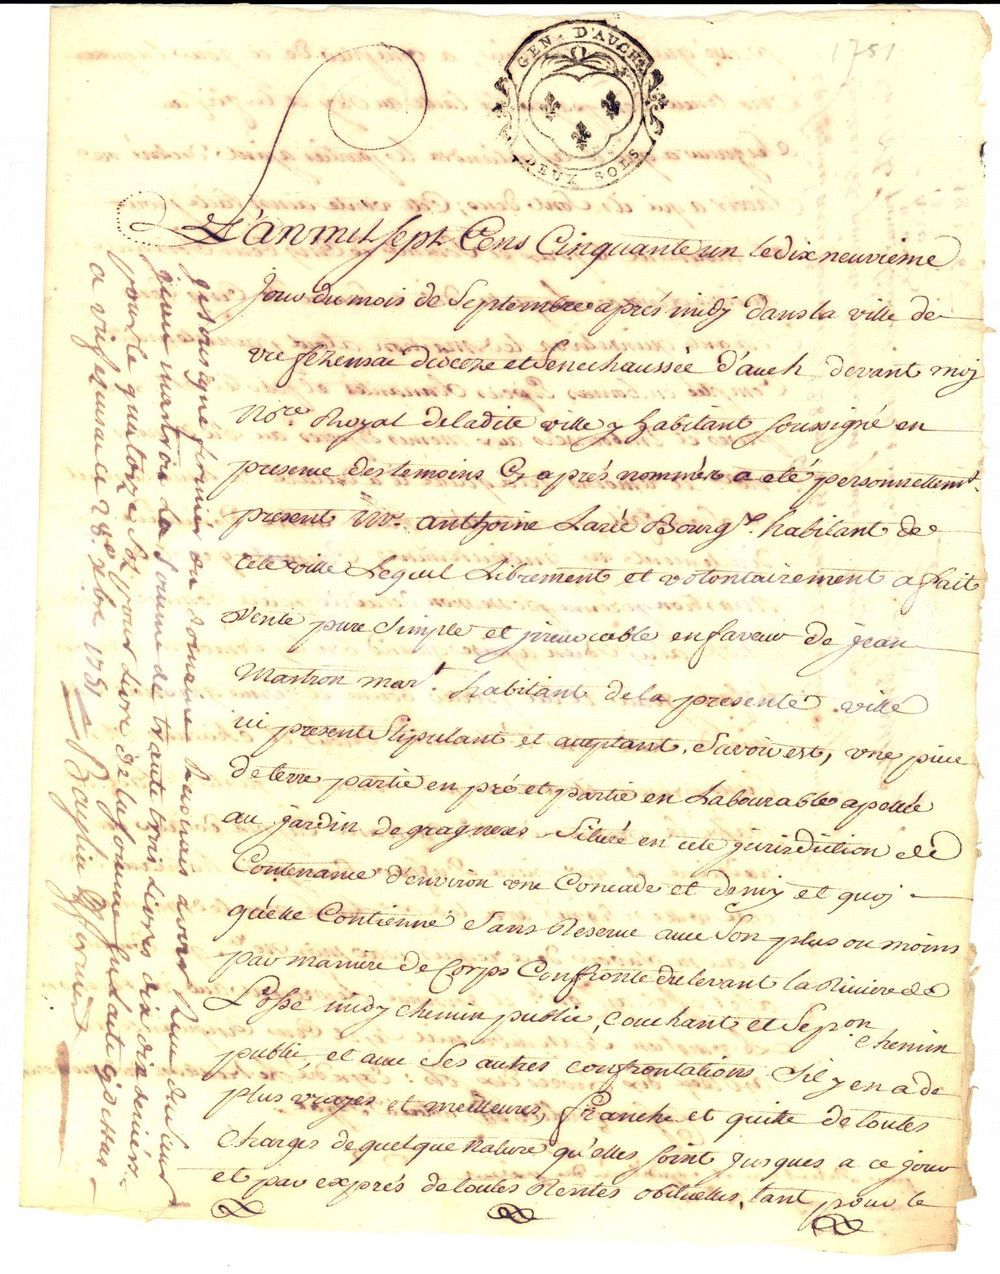 1751
GEN. D'AUCH
DEUX SOLS
L'an mil sept Cens Cinquante un le dix neuvieme
Jour du mois de Septembre aprés midy dans la ville de
vic fezensac dioceze et Senechaussée d'auch devant moy
Nore Royal de ladite ville y habitant soussigné en
presence des temoins Cy aprés nommés a eté personnellemt
present Mr. anthoine Larée Bourgs. habitant de
cete ville Lequel Librement et volontairement a fait
vente pure simple et jrrevocable en faveur de jean
Mastron mart. habitant de la presente ville
ici present Stipulant et aceptant, Savoir est, une piece
de terre partie en pré et partie en Labourable apellée
au jardin de Située en cete jurisdiction de
Contenance d'environ une Concade et demy et quoy
qu'elle Contienne Sans Reserve avec Son plus ou moins
par maniere de Corps Confronte du levant la Riviere de
Losse midy chemin public, Couchant et Sepon chemin
public, et avec Ses autres confrontations Sil y en a de
plus vrayes et meilleures, franche et quitte de toutes
charges de quelque Nature qu'elles soint jusques a ce jour
et par exprés de toutes Rentes obituelles, tant pour le
je soussigné fermier du domaine avoir Reçu du sieur
jean mastron La Somme de trante trois livres dix dix deniers
pour le quatorze Sol pour livre de la somme
a vicfezensac ce 28e xbre 1751